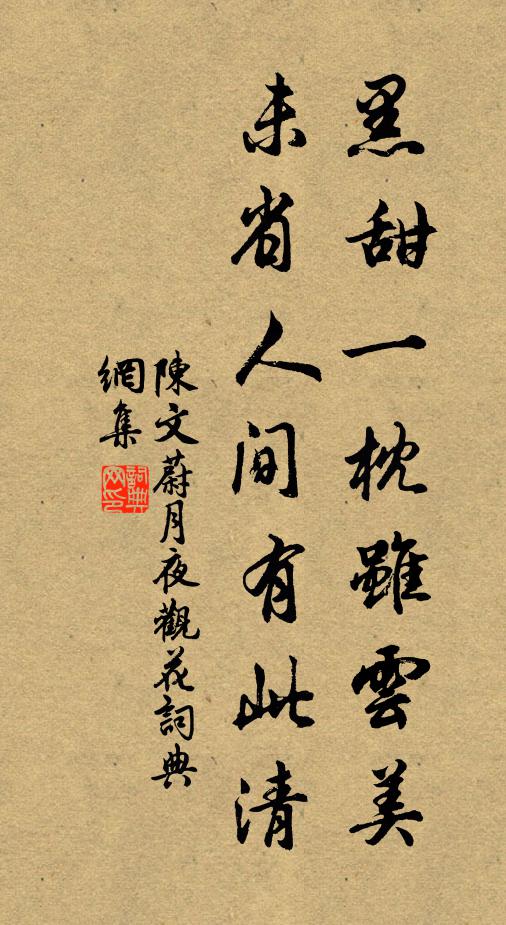 黑甜一枕雖雲美
未省人間有此清
陳文蔚月夜觀花詞典
網集
詞典
网印